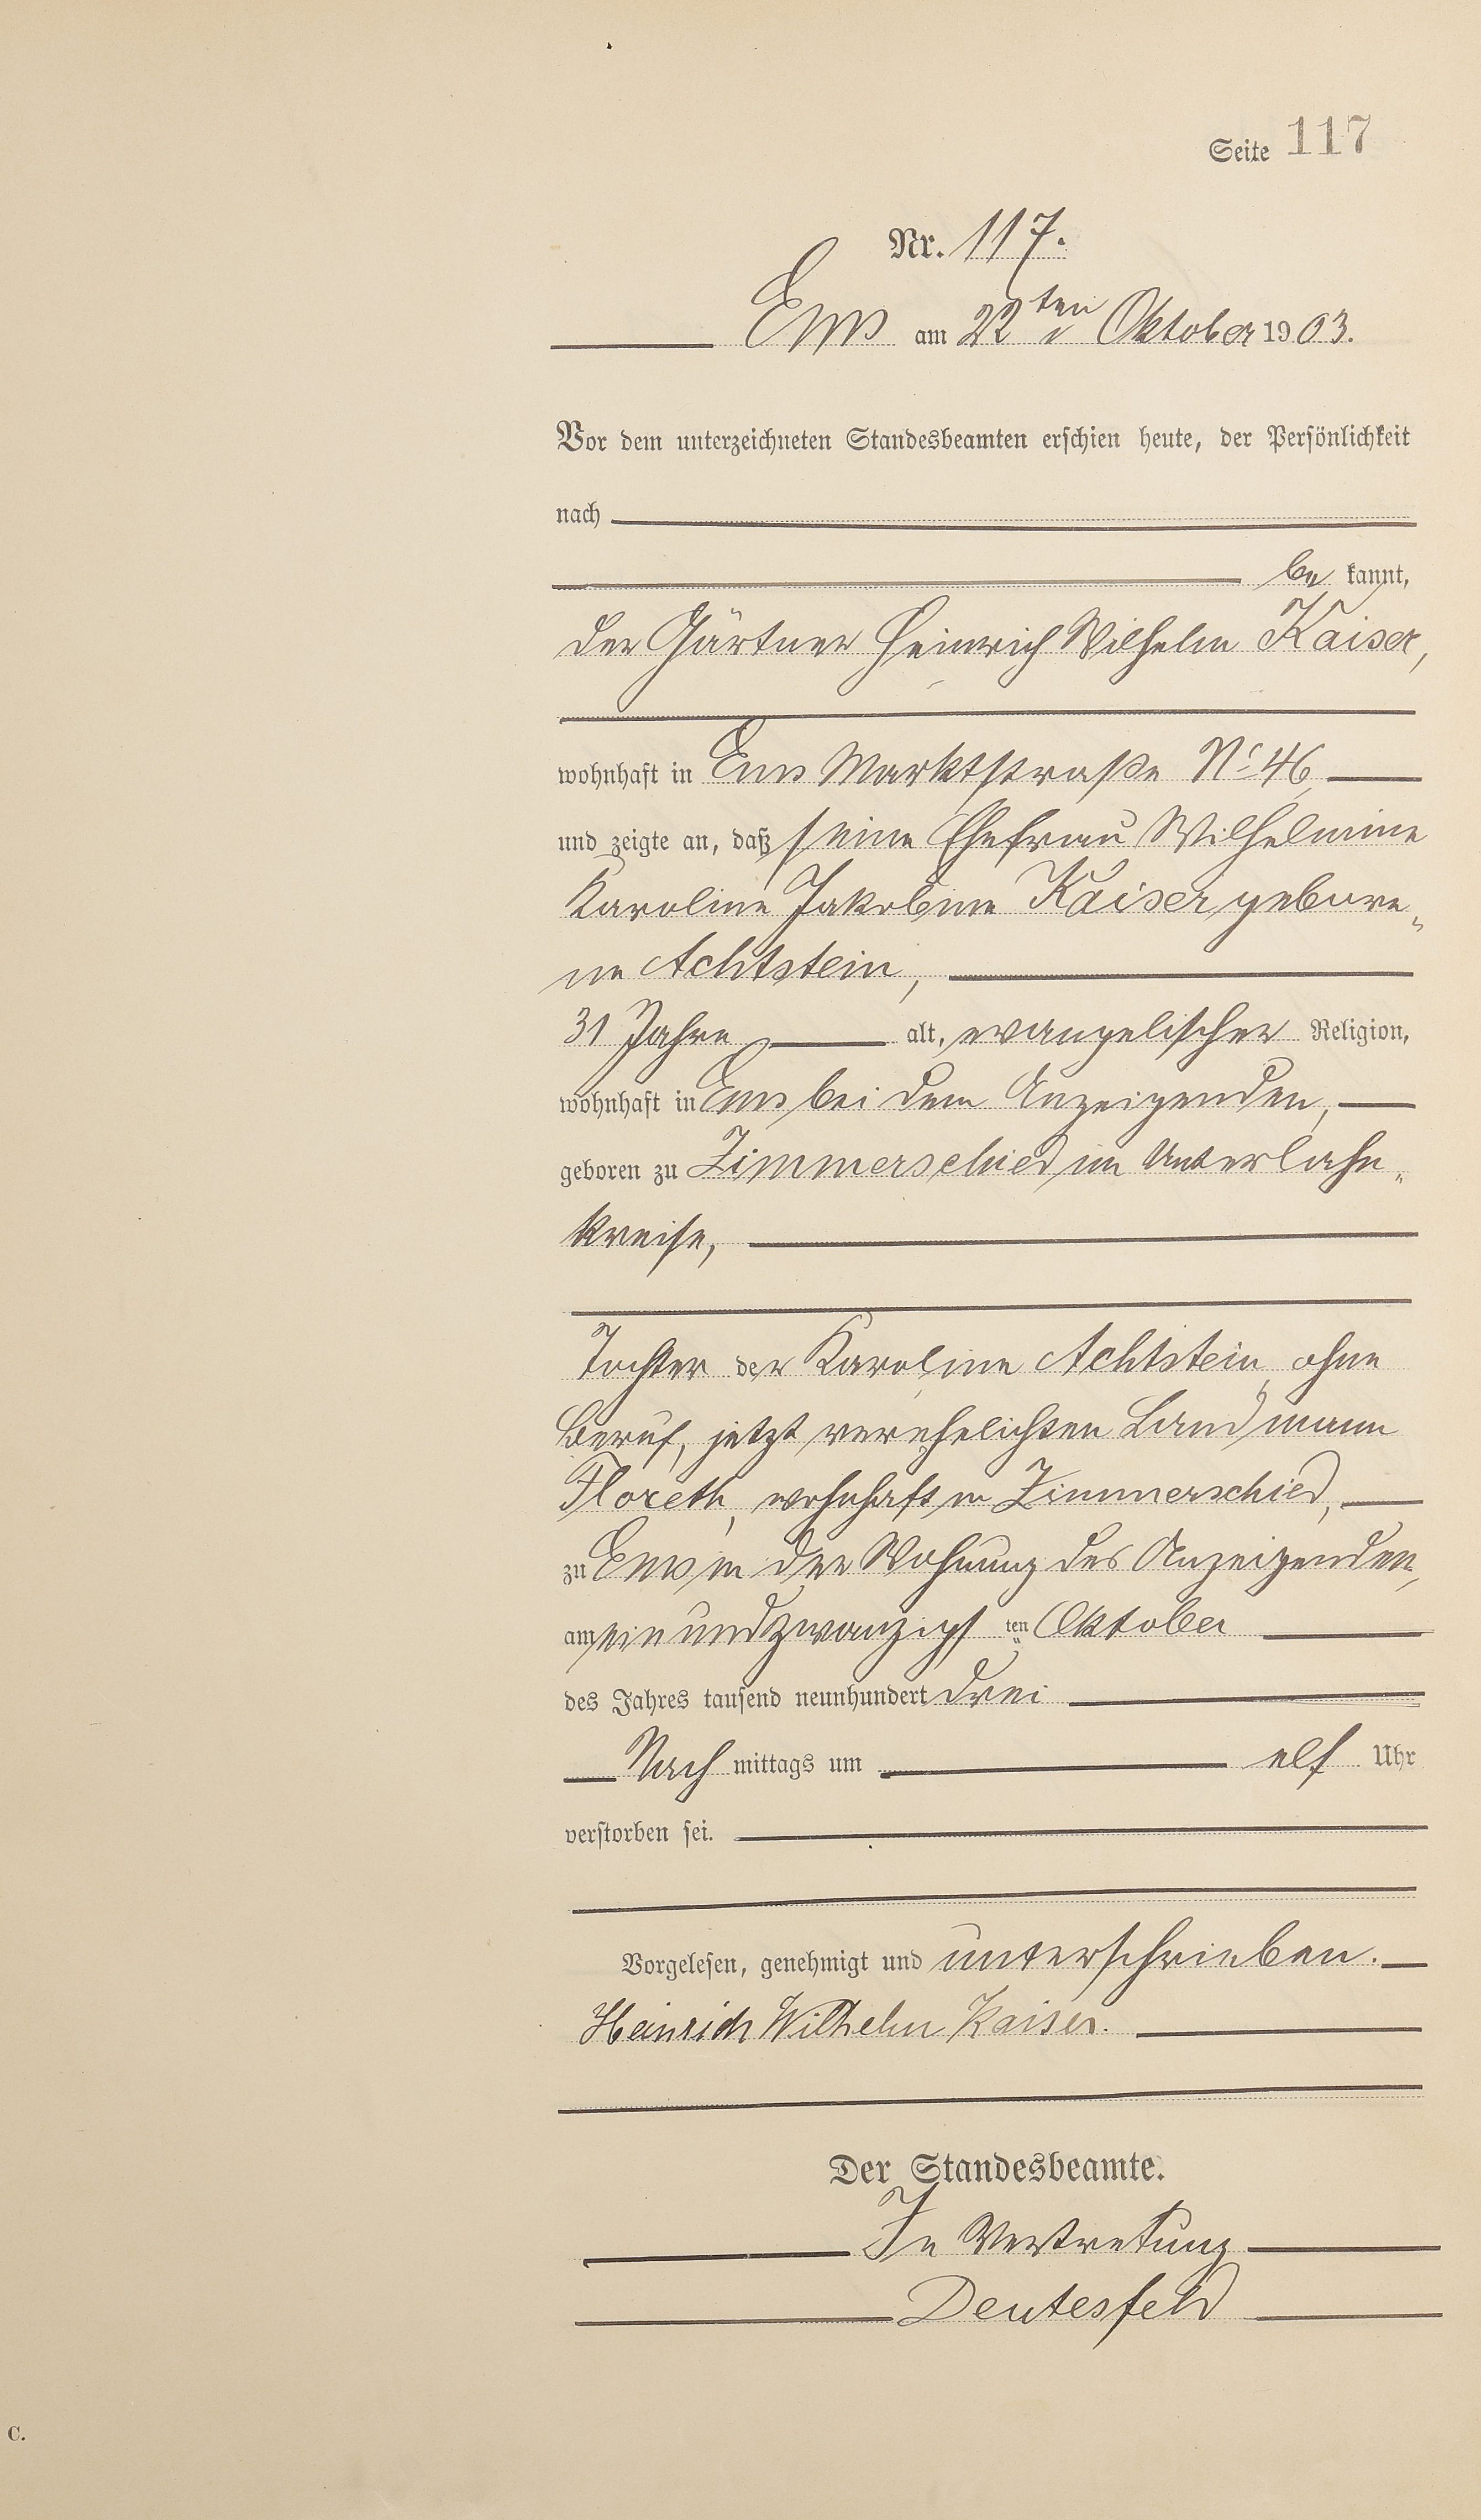 Seite 117
Nr. 117.
Ems am 22ten Oktober 1903.
Vor dem unterzeichneten Standesbeamten erschien heute, der Persönlichkeit
nach
be kannt,
der Gärtner Heinrich Wilhelm Kaiser,
wohnhaft in Ems Marktstraße No 46
und zeigte an, daß seine Ehefrau Wilhelmine
Karoline Jakobine Kaiser gebore„
ne Achtstein,
31 Jahre alt, evangelischer Religion,
wohnhaft in Ems bei dem Anzeigenden,
geboren zu Zimmerschied im Unterlahn„
kreise,
Tochter der Karoline Achtstein, ohne
Beruf, jetzt verehelichten Landmann
Floreth, wohnhaft in Zimmerschied,
zu Ems in der Wohnung des Anzeigenden,
am einundzwanzigsten Oktober
des Jahres tausend neunhundert drei
Nach mittags um elf Uhr
verstorben sei.
Vorgelesen, genehmigt und unterschrieben.
Heinrich Wilhelm Kaiser.
Der Standesbeamte.
In Vertretung
Deutesfeld
C.